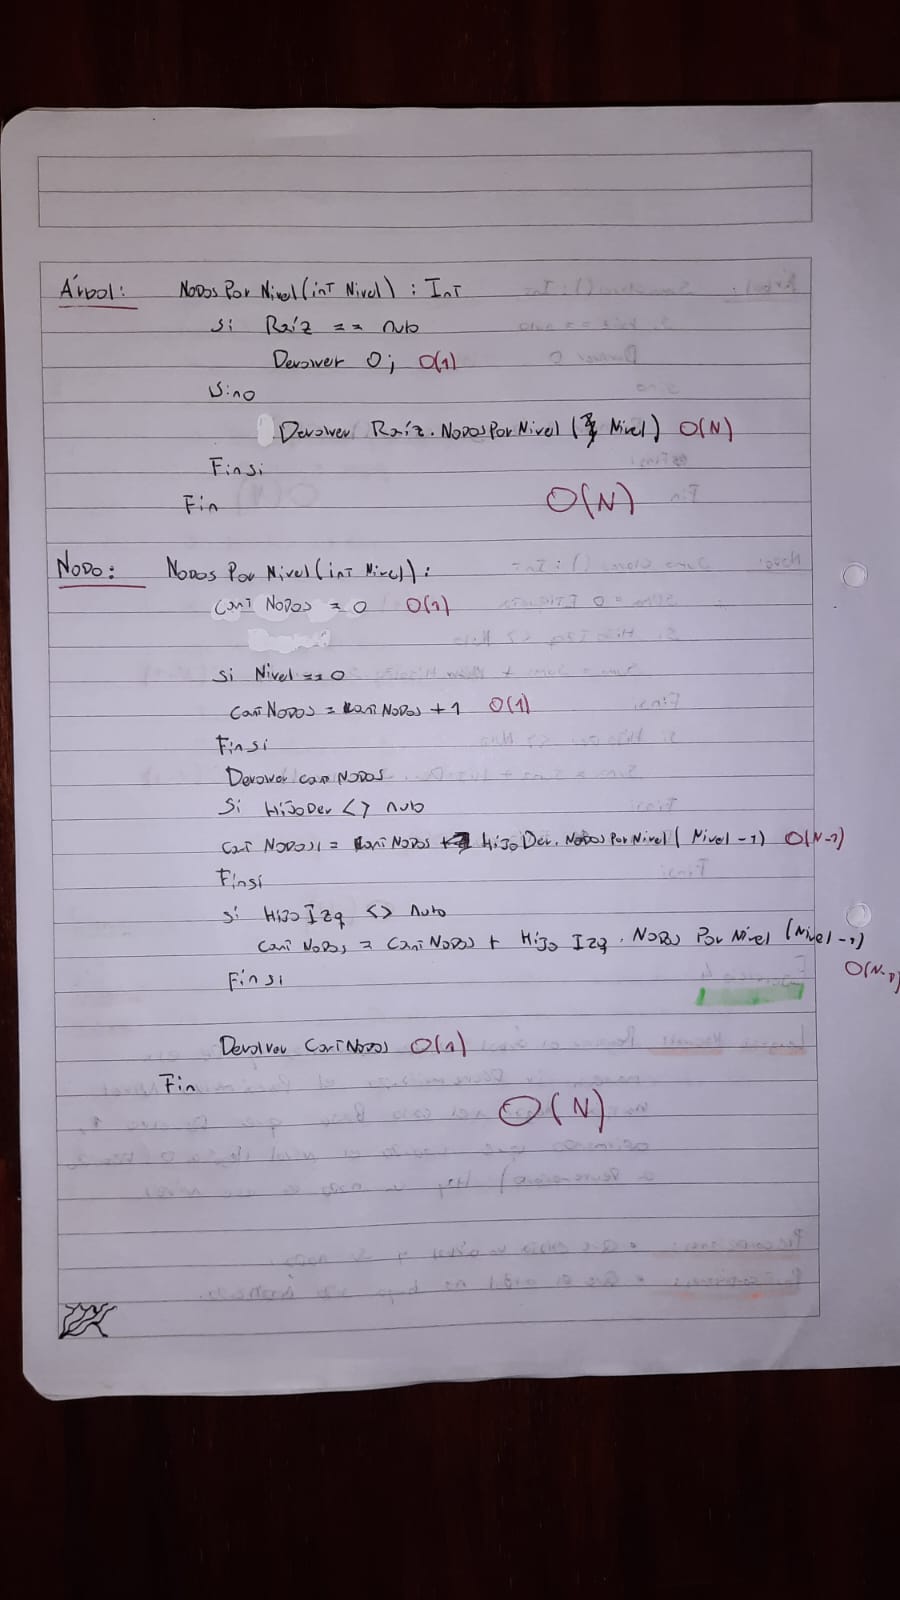 Árbol: Nodos Por Nivel (int Nivel) : Int
Si Raíz == nulo
Devolver 0; O(1)
Sino
Devolver Raíz. Nodos Por Nivel ( Nivel) O(N)
Finsi
Fin O(N)
Nodo: Nodos Por Nivel (int Nivel) :
Cant Nodos = 0 O(1)
Si Nivel == 0
Cant Nodos = Cant Nodos + 1 O(1)
Finsi
Devolver cant Nodos
Si HijoDer <> nulo
Cant Nodos = Cant Nodos + HijoDer. Nodos Por Nivel ( Nivel -1) O(N-1)
Finsi
Si Hijo Izq <> nulo
Cant Nodos = Cant Nodos + Hijo Izq . Nodos Por Nivel (Nivel -1)
O(N-1)
Finsi
Devolver Cant Nodos O(1)
Fin
O(N)